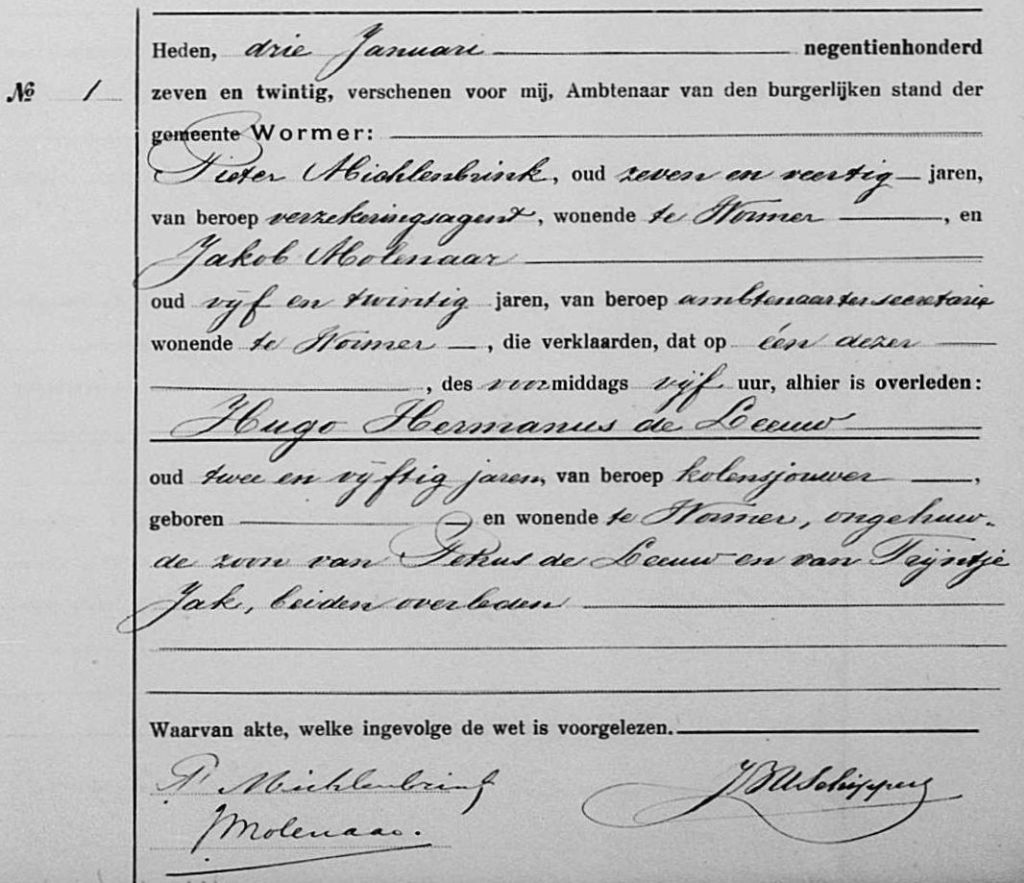 Heden, drie Januari negentienhonderd
No 1 zeven en twintig, verschenen voor mij, Ambtenaar van den burgerlijken stand der
gemeente Wormer:
Pieter Michlenbrink, oud zeven en veertig jaren,
van beroep verzekeringsagent, wonende te Wormer, en
Jakob Molenaar
oud vijf en twintig jaren, van beroep ambtenaar ter secretarie
wonende te Wormer, die verklaarden, dat op één dezer
, des voormiddags vijf uur, alhier is overleden:
Hugo Hermanus de Leeuw
oud twee en vijftig jaren, van beroep kolensjouwer,
geboren en wonende te Wormer, ongehuw-
de zoon van Petrus de Leeuw en van Trijntje
Jak, beiden overleden
Waarvan akte, welke ingevolge de wet is voorgelezen.
P Michlenbrink
JMolenaar.